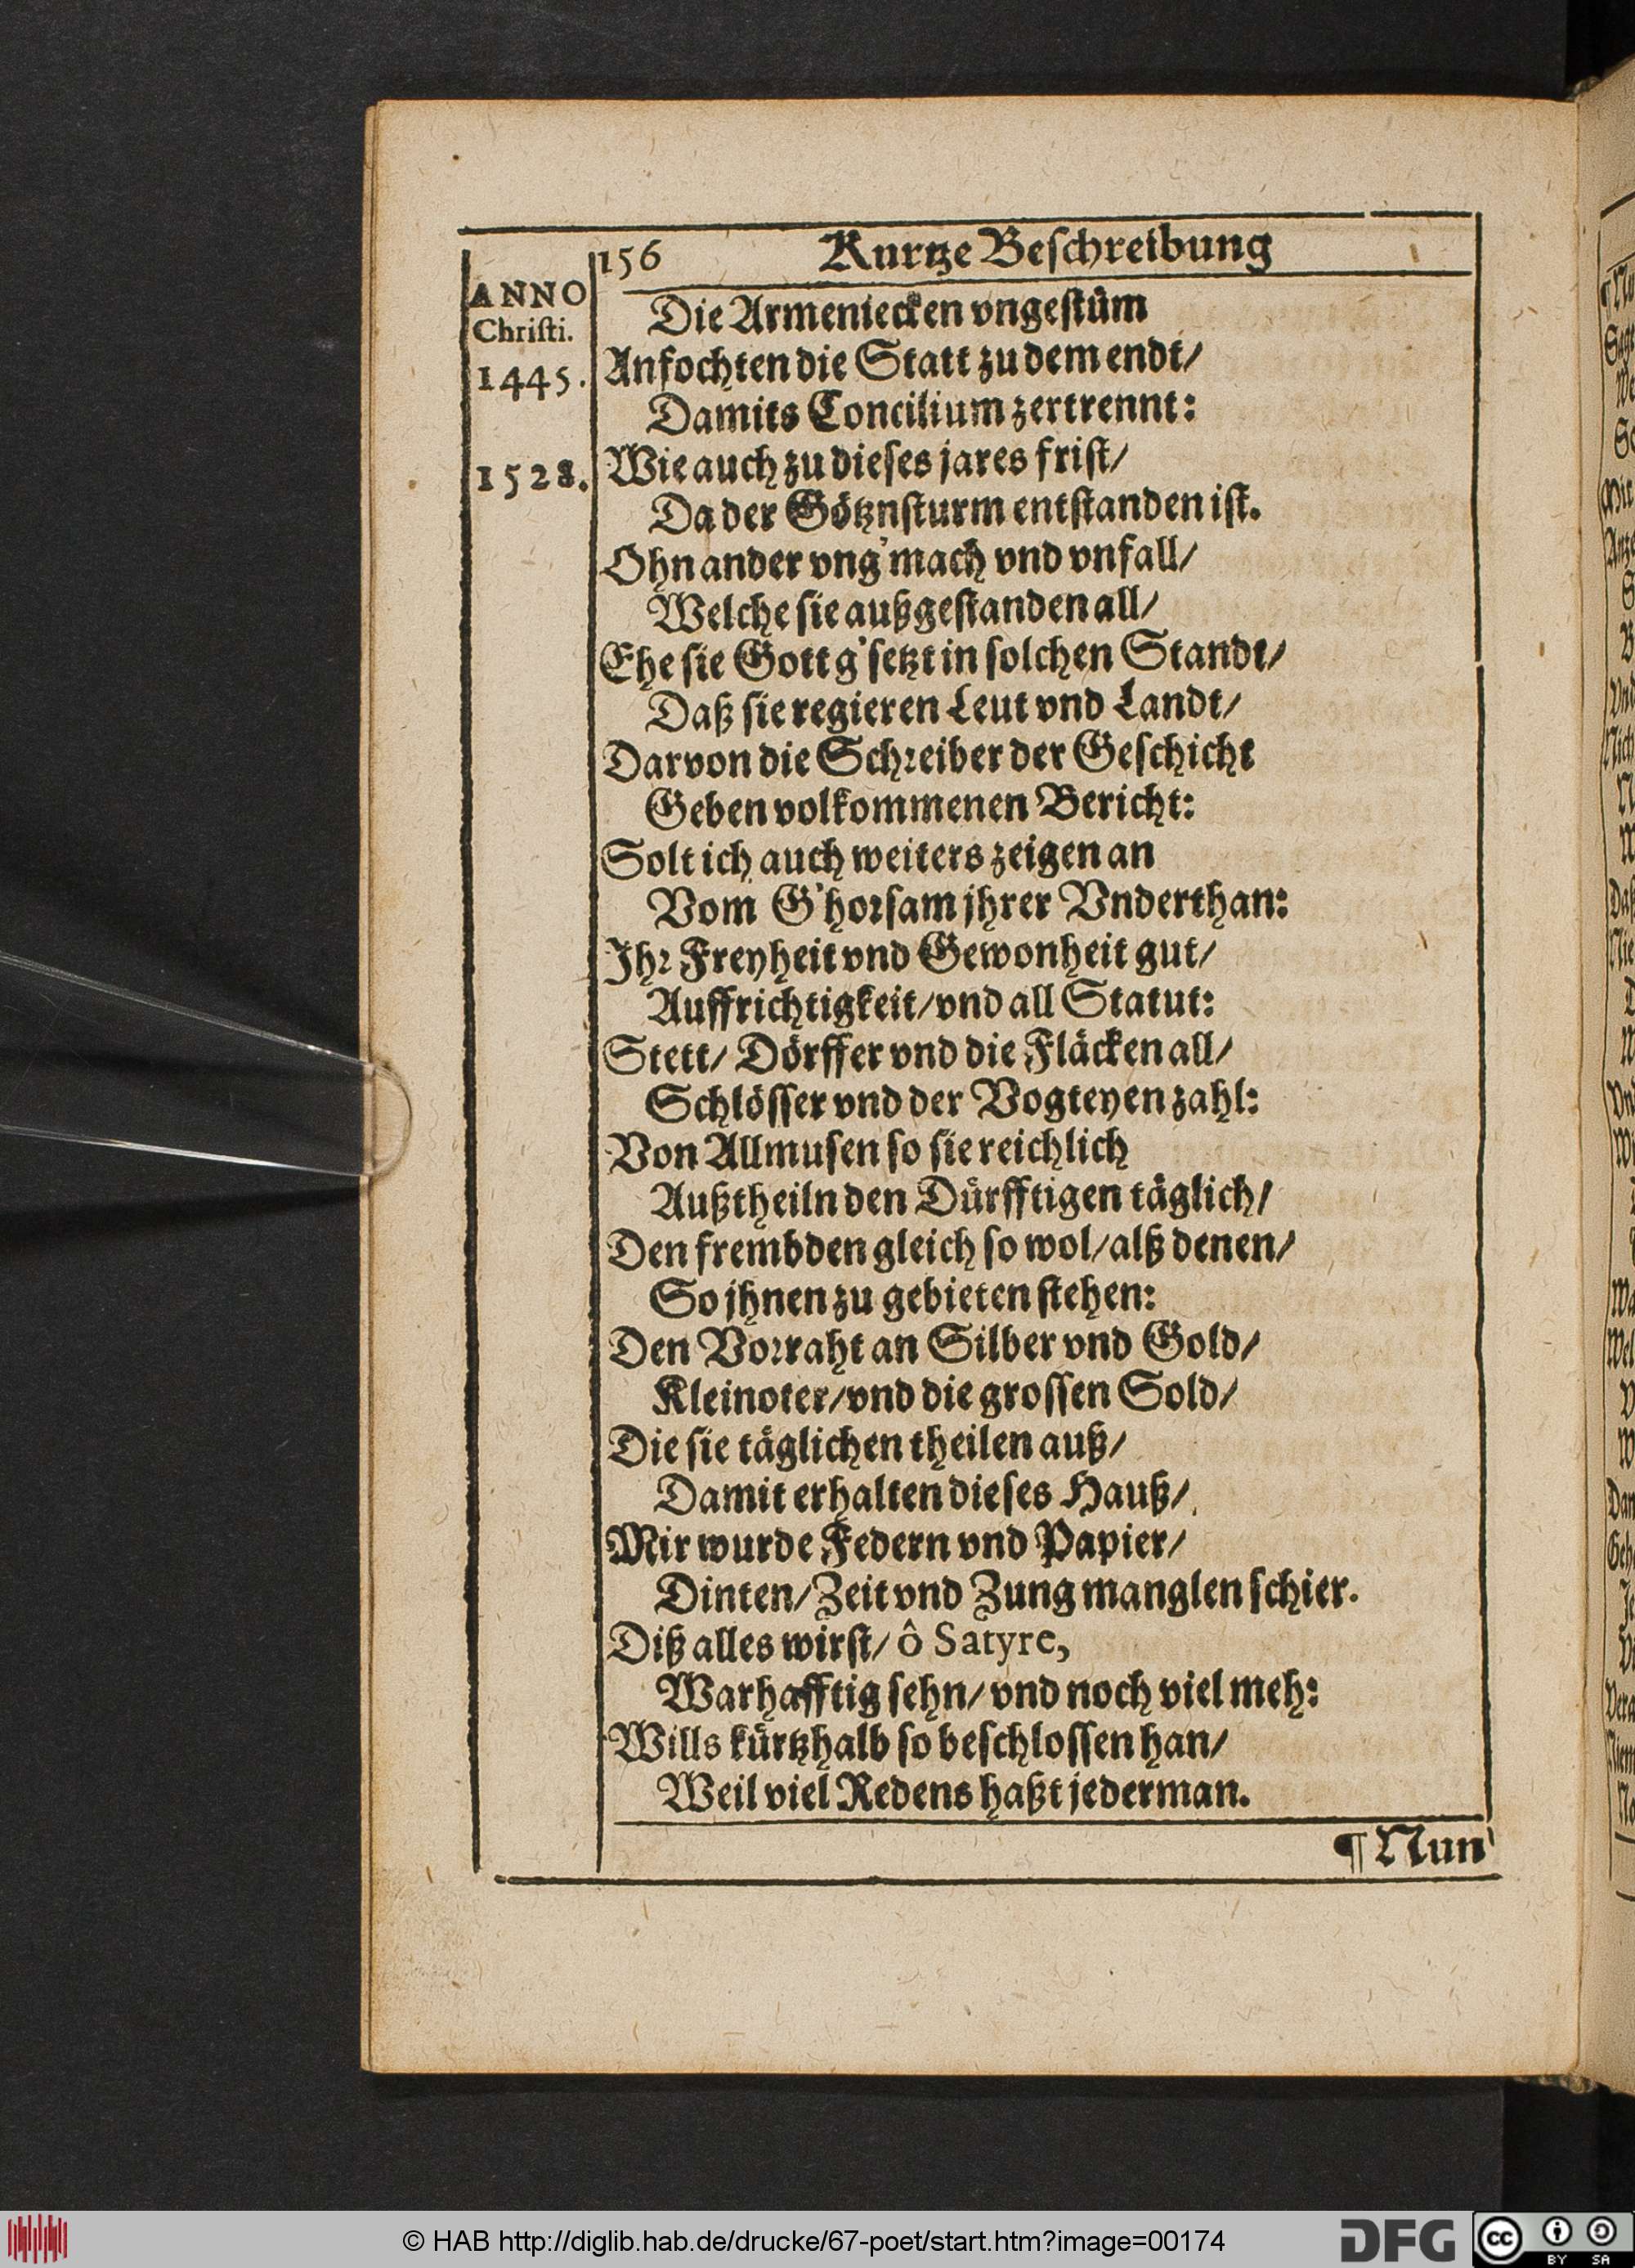 156 Kurtze Beschreibung
ANNO
Christi.
1445.
1528.
Die Armeniecken vngestüm
Anfochten die Statt zu dem endt/
Damits Concilium zertrennt:
Wie auch zu dieses jares frist/
Da der Götznsturm entstanden ist.
Ohn ander vng'mach vnd vnfall/
Welche sie außgestanden all/
Ehe sie Gott g'setzt in solchen Standt/
Daß sie regieren Leut vnd Landt/
Darvon die Schreiber der Geschicht
Geben volkommenen Bericht:
Solt ich auch weiters zeigen an
Vom G'horsam jhrer Vnderthan:
Ihr Freyheit vnd Gewonheit gut/
Auffrichtigkeit/vnd all Statut:
Stett/ Dörffer vnd die Fläcken all/
Schlösser vnd der Vogteyen zahl:
Von Allmusen so sie reichlich
Außtheiln den Dürfftigen täglich/
Den frembden gleich so wol/alß denen/
So jhnen zu gebieten stehen:
Den Vorraht an Silber vnd Gold/
Kleinoter/vnd die grossen Sold/
Die sie täglichen theilen auß/
Damit erhalten dieses Hauß/
Mir wurde Federn vnd Papier/
Dinten/Zeit vnd Zung manglen schier.
Diß alles wirst/ ô Satyre,
Warhafftig sehn/vnd noch viel meh:
Wills kürtzhalb so beschlossen han/
Weil viel Redens haßt jederman.
¶ Nun
© HAB http://diglib.hab.de/drucke/67-poet/start.htm?image=00174
DFG
cc
BY SA